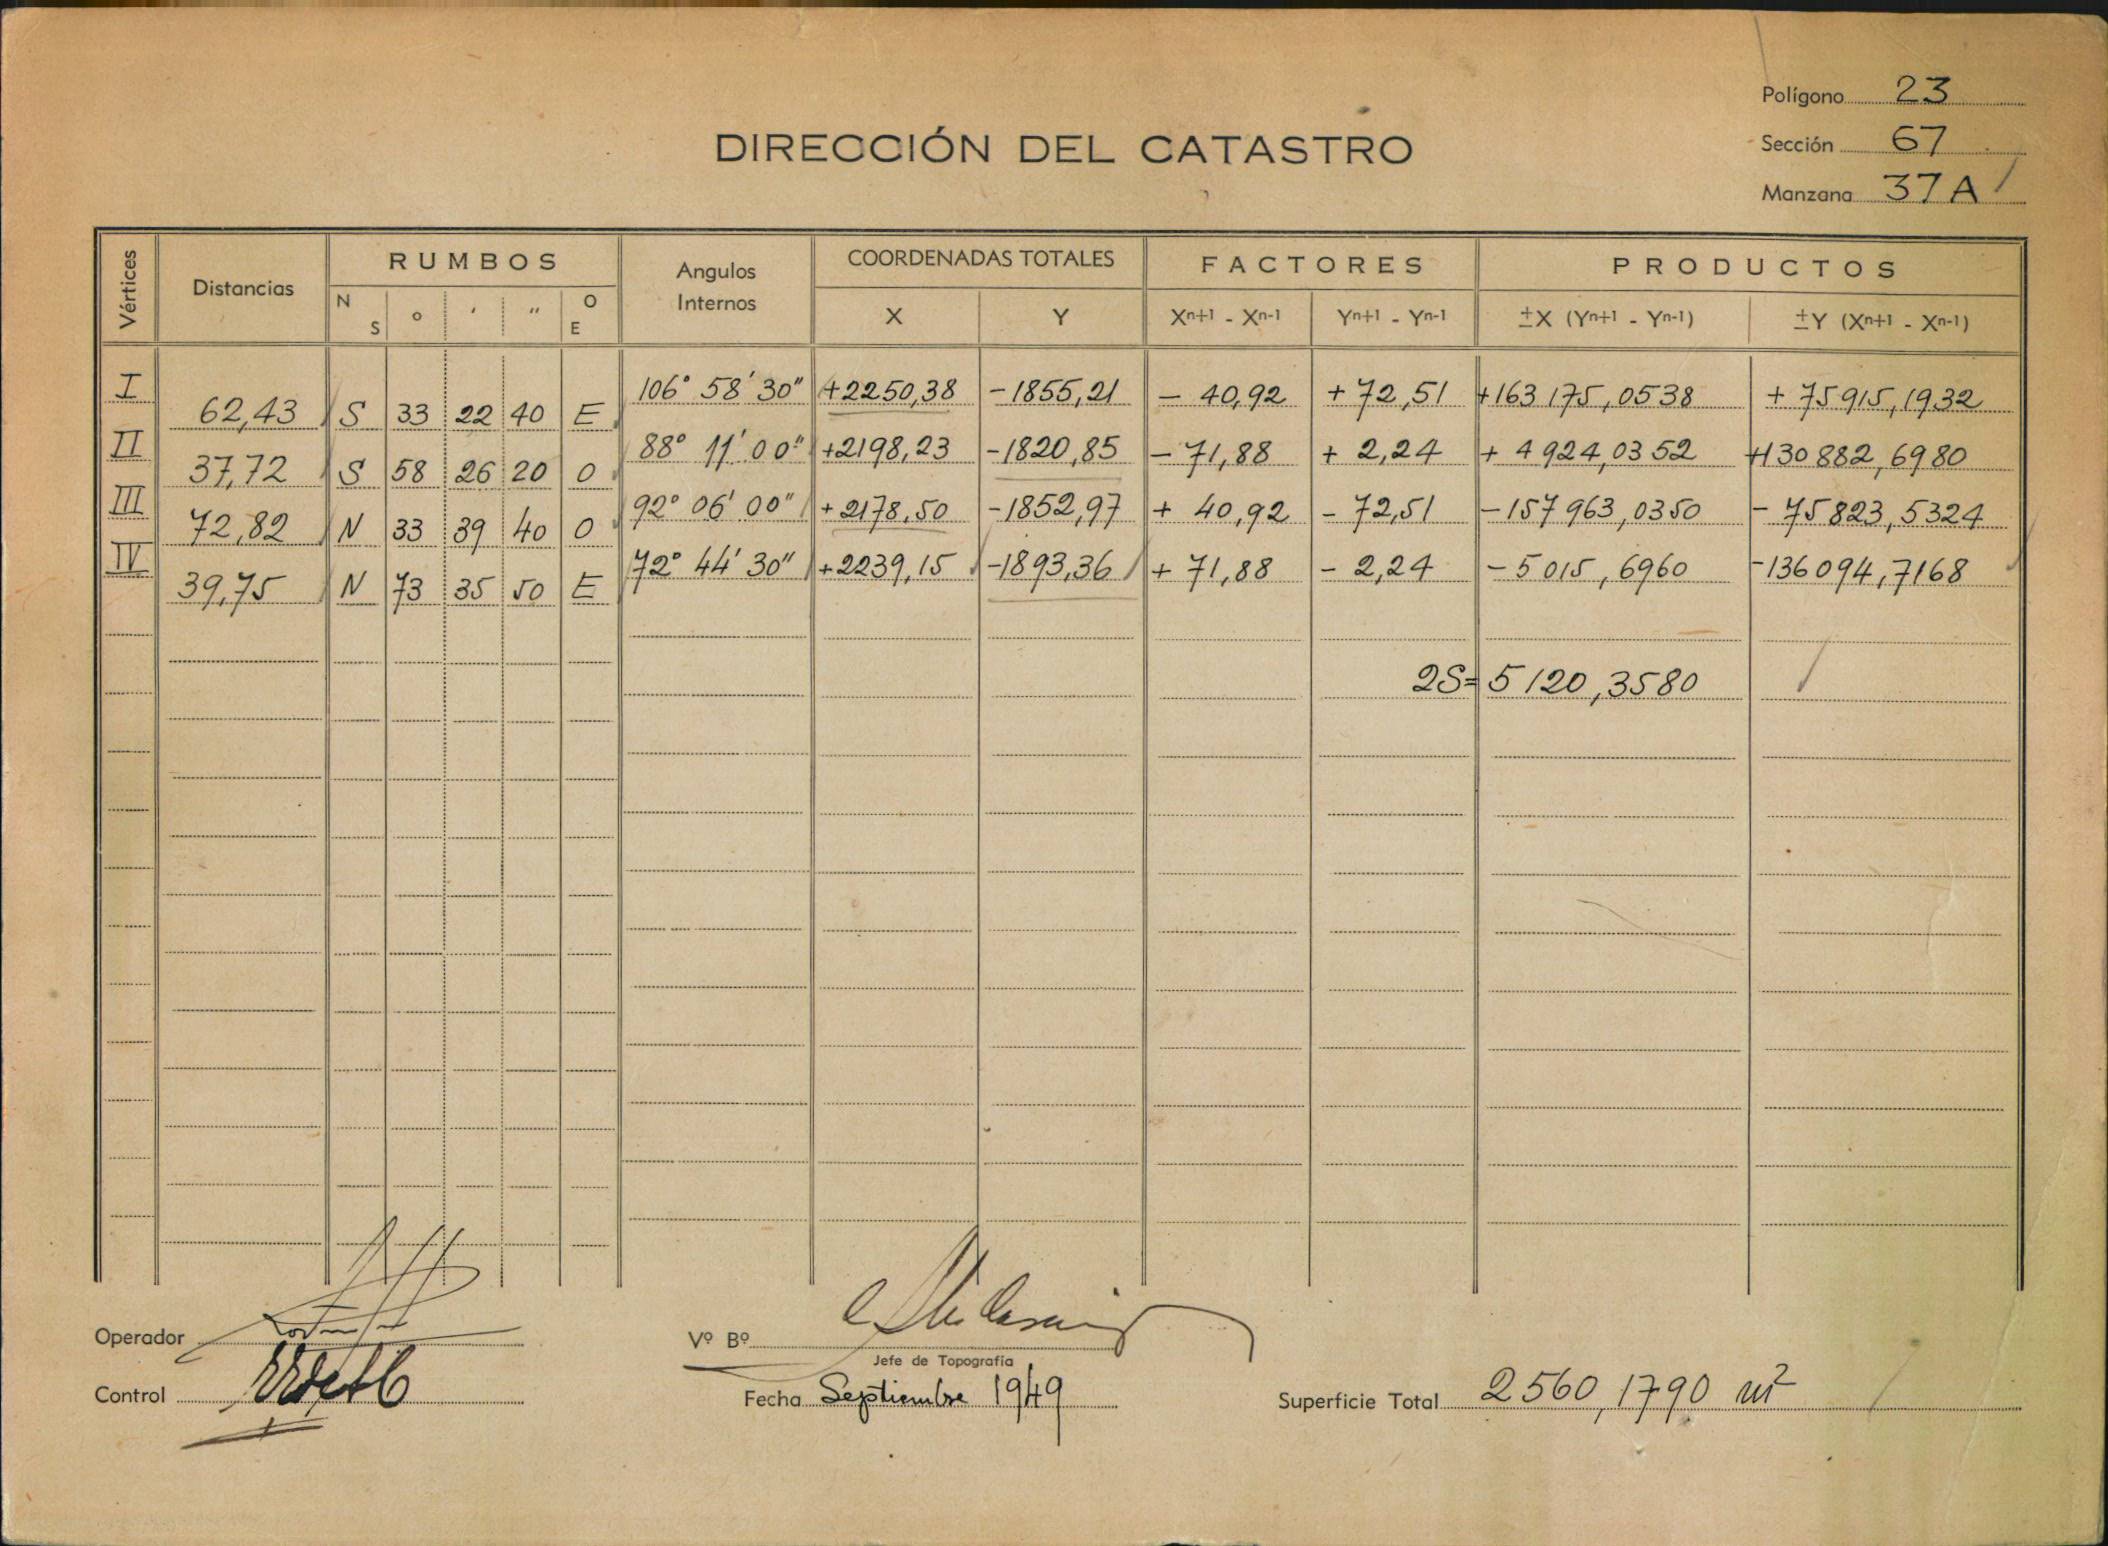 Polígono 23
DIRECCIÓN DEL CATASTRO
Sección 67
Manzana 37 A
Vértices Distancias RUMBOS Angulos Internos COORDENADAS TOTALES FACTORES PRODUCTOS
N S ° ' " O E X Y Xn+1 - Xn-1 Yn+1 - Yn-1 ±X (Yn+1 - Yn-1) ±Y (Xn+1 - Xn-1)
I 106° 58' 30" +2250,38 -1855,21 - 40,92 + 72,51 +163 175,0538 + 75915,1932
62,43 S 33 22 40 E
II 88° 11' 00" +2198,23 -1820,85 - 71,88 + 2,24 + 4 924,0352 +130 882,6980
37,72 S 58 26 20 O
III 92° 06' 00" +2178,50 -1852,97 + 40,92 - 72,51 -157 963,0350 - 75823,5324
72,82 N 33 39 40 O
IV 72° 44' 30" +2239,15 -1893,36 + 71,88 - 2,24 - 5 015,6960 -136 094,7168
39,75 N 73 35 50 E
2S= 5 120,3580
Operador
Vº Bº
Jefe de Topografía
Control
Fecha Septiembre 1949
Superficie Total 2560,1790 m²